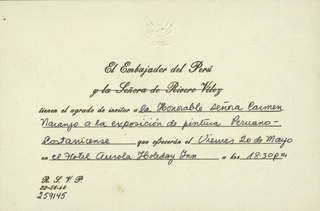 El Embajador del Perú
y la Señora de Rivero Vélez
tienen el agrado de invitar a la Honorable Señora Carmen
Naranjo a la exposición de pintura Peruano-
Costarricense que ofrecerán el Viernes 20 de Mayo
en el Hotel Aurola Holeday Inn a las 18:30 pm
R. S. V. P
259145